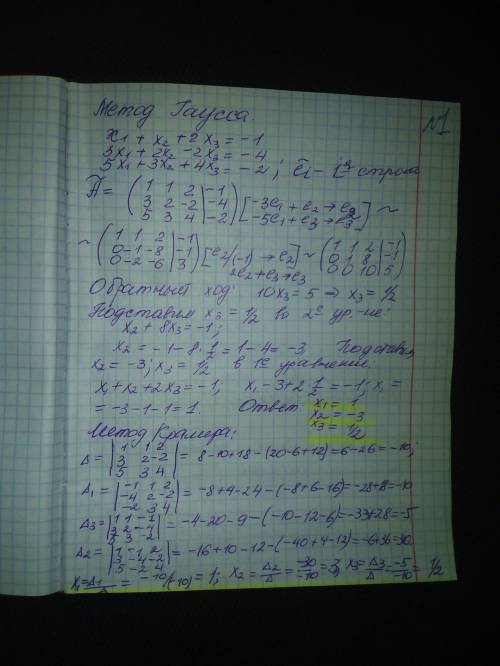 Метод Гаусса. №1
x1 + x2 + 2x3 = -1
3x1 + 2x2 - 2x3 = -4
5x1 + 3x2 + 4x3 = -2 ;
Ã = (1 1 2 | -1
3 2 -2 | -4
5 3 4 | -2) [-3e1 + e2 → e2
-5e1 + e3 → e3] ~
~ (1 1 2 | -1
0 -1 -8 | -1
0 -2 -6 | 3) [e2/(-1) → e2
2e2 + e3 → e3] ~ (1 1 2 | -1
0 1 8 | -1
0 0 10 | 5)
Обратный ход: 10x3 = 5 ⇒ x3 = 1/2
Подставим x3 = 1/2 во 2е ур-ие:
x2 + 8x3 = -1;
x2 = -1 - 8 · 1/2 = 1 - 4 = -3 Подставим
x2 = -3; x3 = 1/2 в 1е уравнение:
x1 + x2 + 2x3 = -1, x1 - 3 + 2 1/2 = -1; x1 =
= -3 - 1 - 1 = 1. Ответ: x1 = 1
x2 = -3
x3 = 1/2
Метод Крамера:
Δ = |1 1 2
3 2 -2
5 3 4| = 8 - 10 + 18 - (20 - 6 + 12) = 6 - 26 = -10;
Δ1 = |-1 1 2
-4 2 -2
-2 3 4| = -8 + 4 - 24 - (-8 + 6 - 16) = -28 + 8 = -10
Δ3 = |1 1 -1
3 2 -4
5 3 -2| = -4 - 20 - 9 - (-10 - 12 - 6) = -33 + 28 = -5
Δ2 = |1 -1 2
3 -4 -2
5 -2 4| = -16 + 10 - 12 - (-40 + 4 - 12) = -6 + 36 = 30
x1 = Δ1/Δ = -10/(-10) = 1; x2 = Δ2/Δ = -30/-10 = 3; x3 = Δ3/Δ = -5/-10 = 1/2